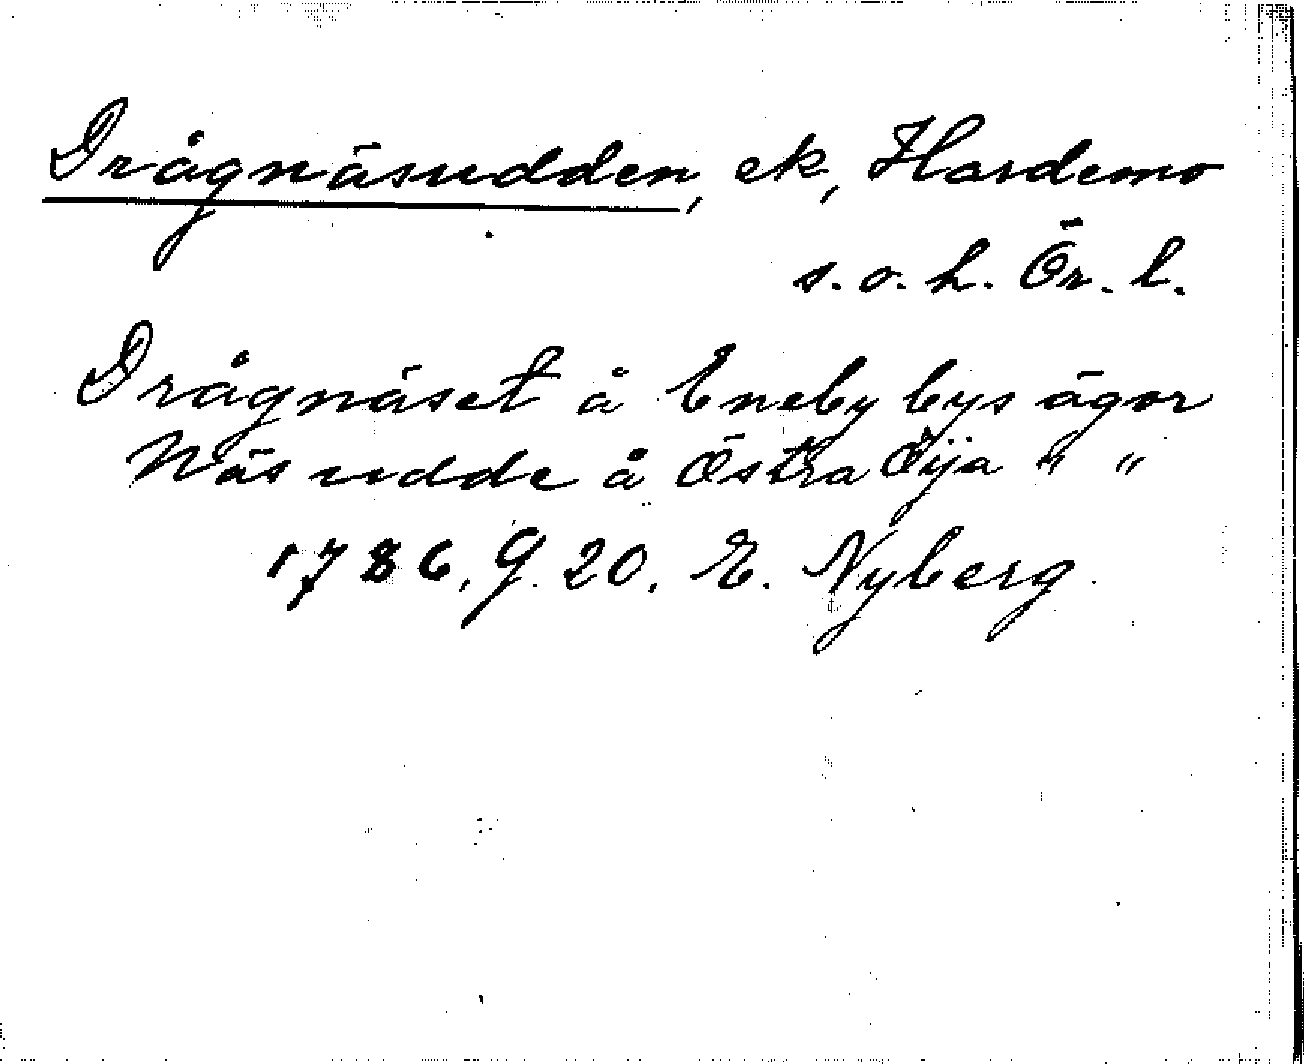 Drågnäsudden, ek, Hardemo
s. o. h. Ör. l.
Drågnäset å Eneby bys ägor
Näs udde å Östra Öija " "
1786, G. 20, E. Nyberg